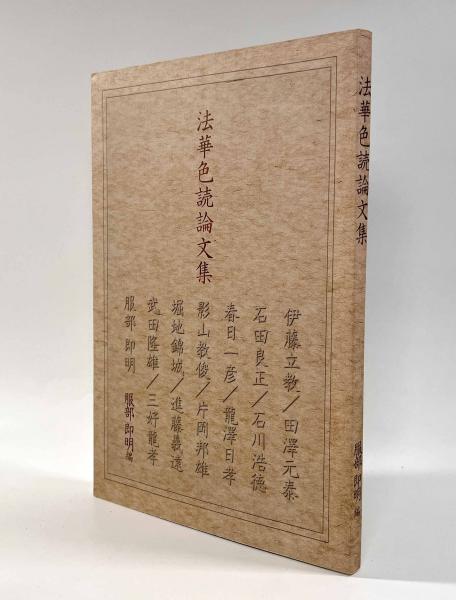 法華色読論文集
伊藤立教/田澤元泰
石田良正/石川浩徳
春日一彦/龍澤日孝
影山教俊/片岡邦雄
堀地錦城/進藤義遠
武田隆雄/三好龍孝
服部即明
服部即明編
法華色読論文集
服部即明編